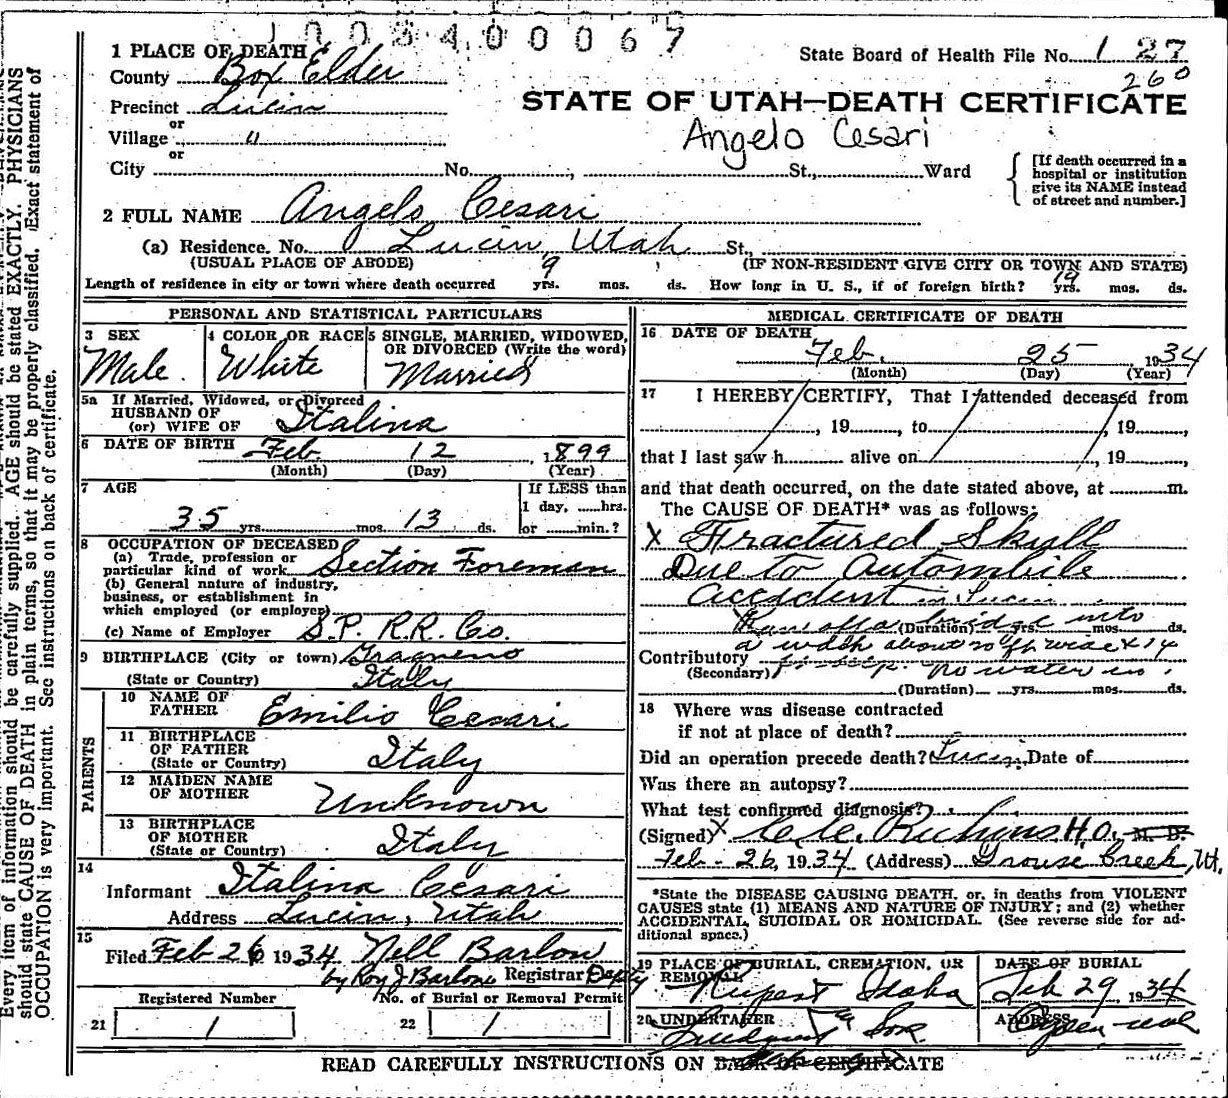 1003400067
1 PLACE OF DEATH
State Board of Health File No. 1 27
260
County Box Elder
STATE OF UTAH—DEATH CERTIFICATE
Precinct Lucin
Angelo Cesari
or
Village "
or
City No. , St., Ward
[If death occurred in a
hospital or institution
give its NAME instead
of street and number.]
2 FULL NAME Angelo Cesari
(a) Residence. No. Lucin, Utah St.,
(USUAL PLACE OF ABODE) (IF NON-RESIDENT GIVE CITY OR TOWN AND STATE)
Length of residence in city or town where death occurred 9 yrs. mos. ds. How long in U. S., if of foreign birth? 19 yrs. mos. ds.
PERSONAL AND STATISTICAL PARTICULARS
3 SEX
Male
4 COLOR OR RACE
White
5 SINGLE, MARRIED, WIDOWED,
OR DIVORCED (Write the word)
Married
5a If Married, Widowed, or Divorced
HUSBAND OF
(or) WIFE OF Italina
6 DATE OF BIRTH Feb 12, 1899
(Month) (Day) (Year)
7 AGE
35 yrs. mos. 13 ds.
If LESS than
1 day, hrs.
or min.?
8 OCCUPATION OF DECEASED
(a) Trade, profession or
particular kind of work Section Foreman
(b) General nature of industry,
business, or establishment in
which employed (or employer)
(c) Name of Employer S.P. R.R. Co.
9 BIRTHPLACE (City or town)
(State or Country) Italy
PARENTS
10 NAME OF
FATHER Emilio Cesari
11 BIRTHPLACE
OF FATHER
(State or Country) Italy
12 MAIDEN NAME
OF MOTHER Unknown
13 BIRTHPLACE
OF MOTHER
(State or Country) Italy
14
Informant Italina Cesari
Address Lucin, Utah
15
Filed Feb 26 1934 Nell Barlow
by Roy J Barlow Registrar Depty
Registered Number No. of Burial or Removal Permit
21 1 22 1
MEDICAL CERTIFICATE OF DEATH
16 DATE OF DEATH
Feb. 25, 1934
(Month) (Day) (Year)
17 I HEREBY CERTIFY, That I attended deceased from
, 19 , to , 19 ,
that I last saw h alive on , 19 ,
and that death occurred, on the date stated above, at m.
The CAUSE OF DEATH* was as follows:
X Fractured Skull
Due to Automobile
accident in Lucin
Ran off a bridge into (Duration) yrs. mos. ds.
Contributory a width about 20 ft wide x 14
(Secondary) ft deep. No water in.
(Duration) yrs. mos. ds.
18 Where was disease contracted
if not at place of death?
Did an operation precede death? Lucin, Date of
Was there an autopsy?
What test confirmed diagnosis?
(Signed) X C.C. Richins H.O. M. D.
Feb - 26, 1934 (Address) Grouse Creek, Ut.
*State the DISEASE CAUSING DEATH, or, in deaths from VIOLENT
CAUSES state (1) MEANS AND NATURE OF INJURY; and (2) whether
ACCIDENTAL, SUICIDAL OR HOMICIDAL. (See reverse side for ad-
ditional space.)
19 PLACE OF BURIAL, CREMATION, OR
REMOVAL
Rupert Idaho
DATE OF BURIAL
Feb 29 1934
20 UNDERTAKER
Lindquist & Sons
ADDRESS
Ogden Utah
READ CAREFULLY INSTRUCTIONS ON BACK OF CERTIFICATE
Every item of information should be carefully supplied. AGE should be stated EXACTLY. PHYSICIANS
should state CAUSE OF DEATH in plain terms, so that it may be properly classified. Exact statement of
OCCUPATION is very important. See instructions on back of certificate.